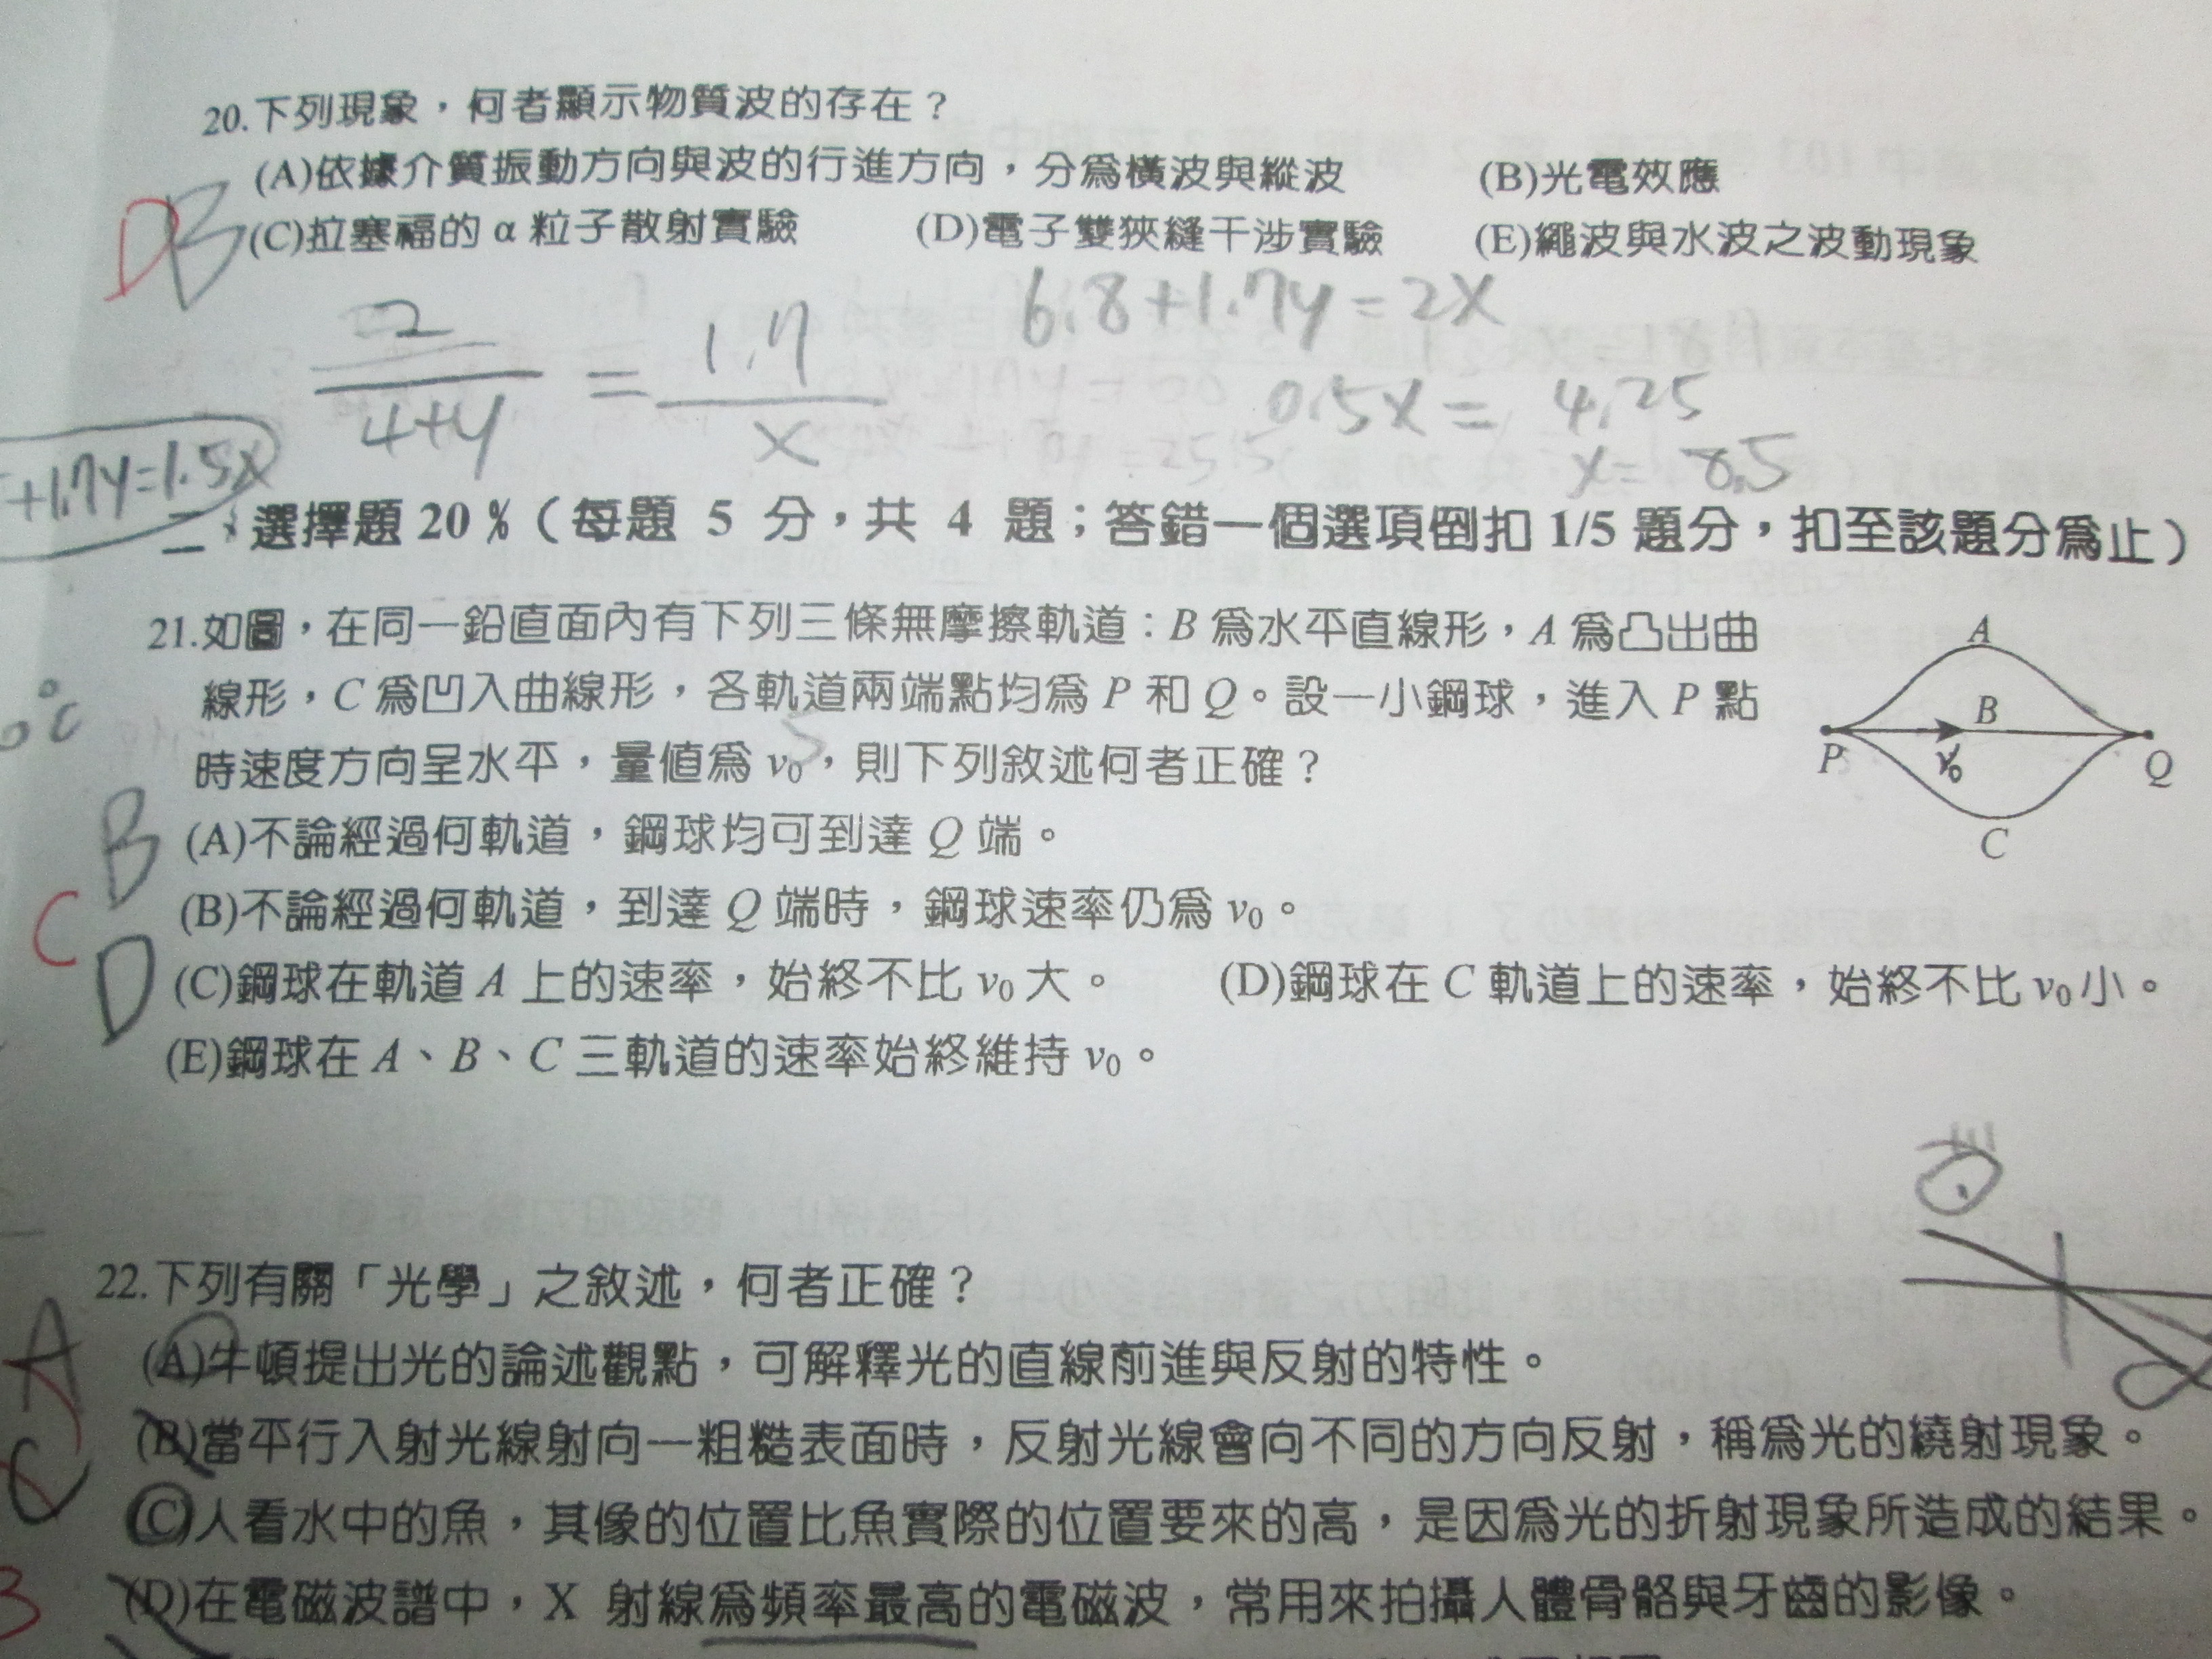 20.下列現象，何者顯示物質波的存在？
(A)依據介質振動方向與波的行進方向，分為橫波與縱波 (B)光電效應
DB
(C)拉塞福的 α 粒子散射實驗 (D)電子雙狹縫干涉實驗 (E)繩波與水波之波動現象
6.8+1.7y=2x
2/(4+y) = 1.7/x
0.5x = 4.25
x = 8.5
+1.7y=1.5x
二、選擇題 20％（每題 5 分，共 4 題；答錯一個選項倒扣 1/5 題分，扣至該題分為止）
21.如圖，在同一鉛直面內有下列三條無摩擦軌道：B 為水平直線形，A 為凸出曲
線形，C 為凹入曲線形，各軌道兩端點均為 P 和 Q。設一小鋼球，進入 P 點
時速度方向呈水平，量值為 v₀，則下列敘述何者正確？
A
B
P
v₀
Q
C
B
(A)不論經過何軌道，鋼球均可到達 Q 端。
C
(B)不論經過何軌道，到達 Q 端時，鋼球速率仍為 v₀。
D
(C)鋼球在軌道 A 上的速率，始終不比 v₀ 大。 (D)鋼球在 C 軌道上的速率，始終不比 v₀ 小。
(E)鋼球在 A、B、C 三軌道的速率始終維持 v₀。
22.下列有關「光學」之敘述，何者正確？
A
(A)牛頓提出光的論述觀點，可解釋光的直線前進與反射的特性。
(B)當平行入射光線射向一粗糙表面時，反射光線會向不同的方向反射，稱為光的繞射現象。
C
(C)人看水中的魚，其像的位置比魚實際的位置要來的高，是因為光的折射現象所造成的結果。
(D)在電磁波譜中，X 射線為頻率最高的電磁波，常用來拍攝人體骨骼與牙齒的影像。